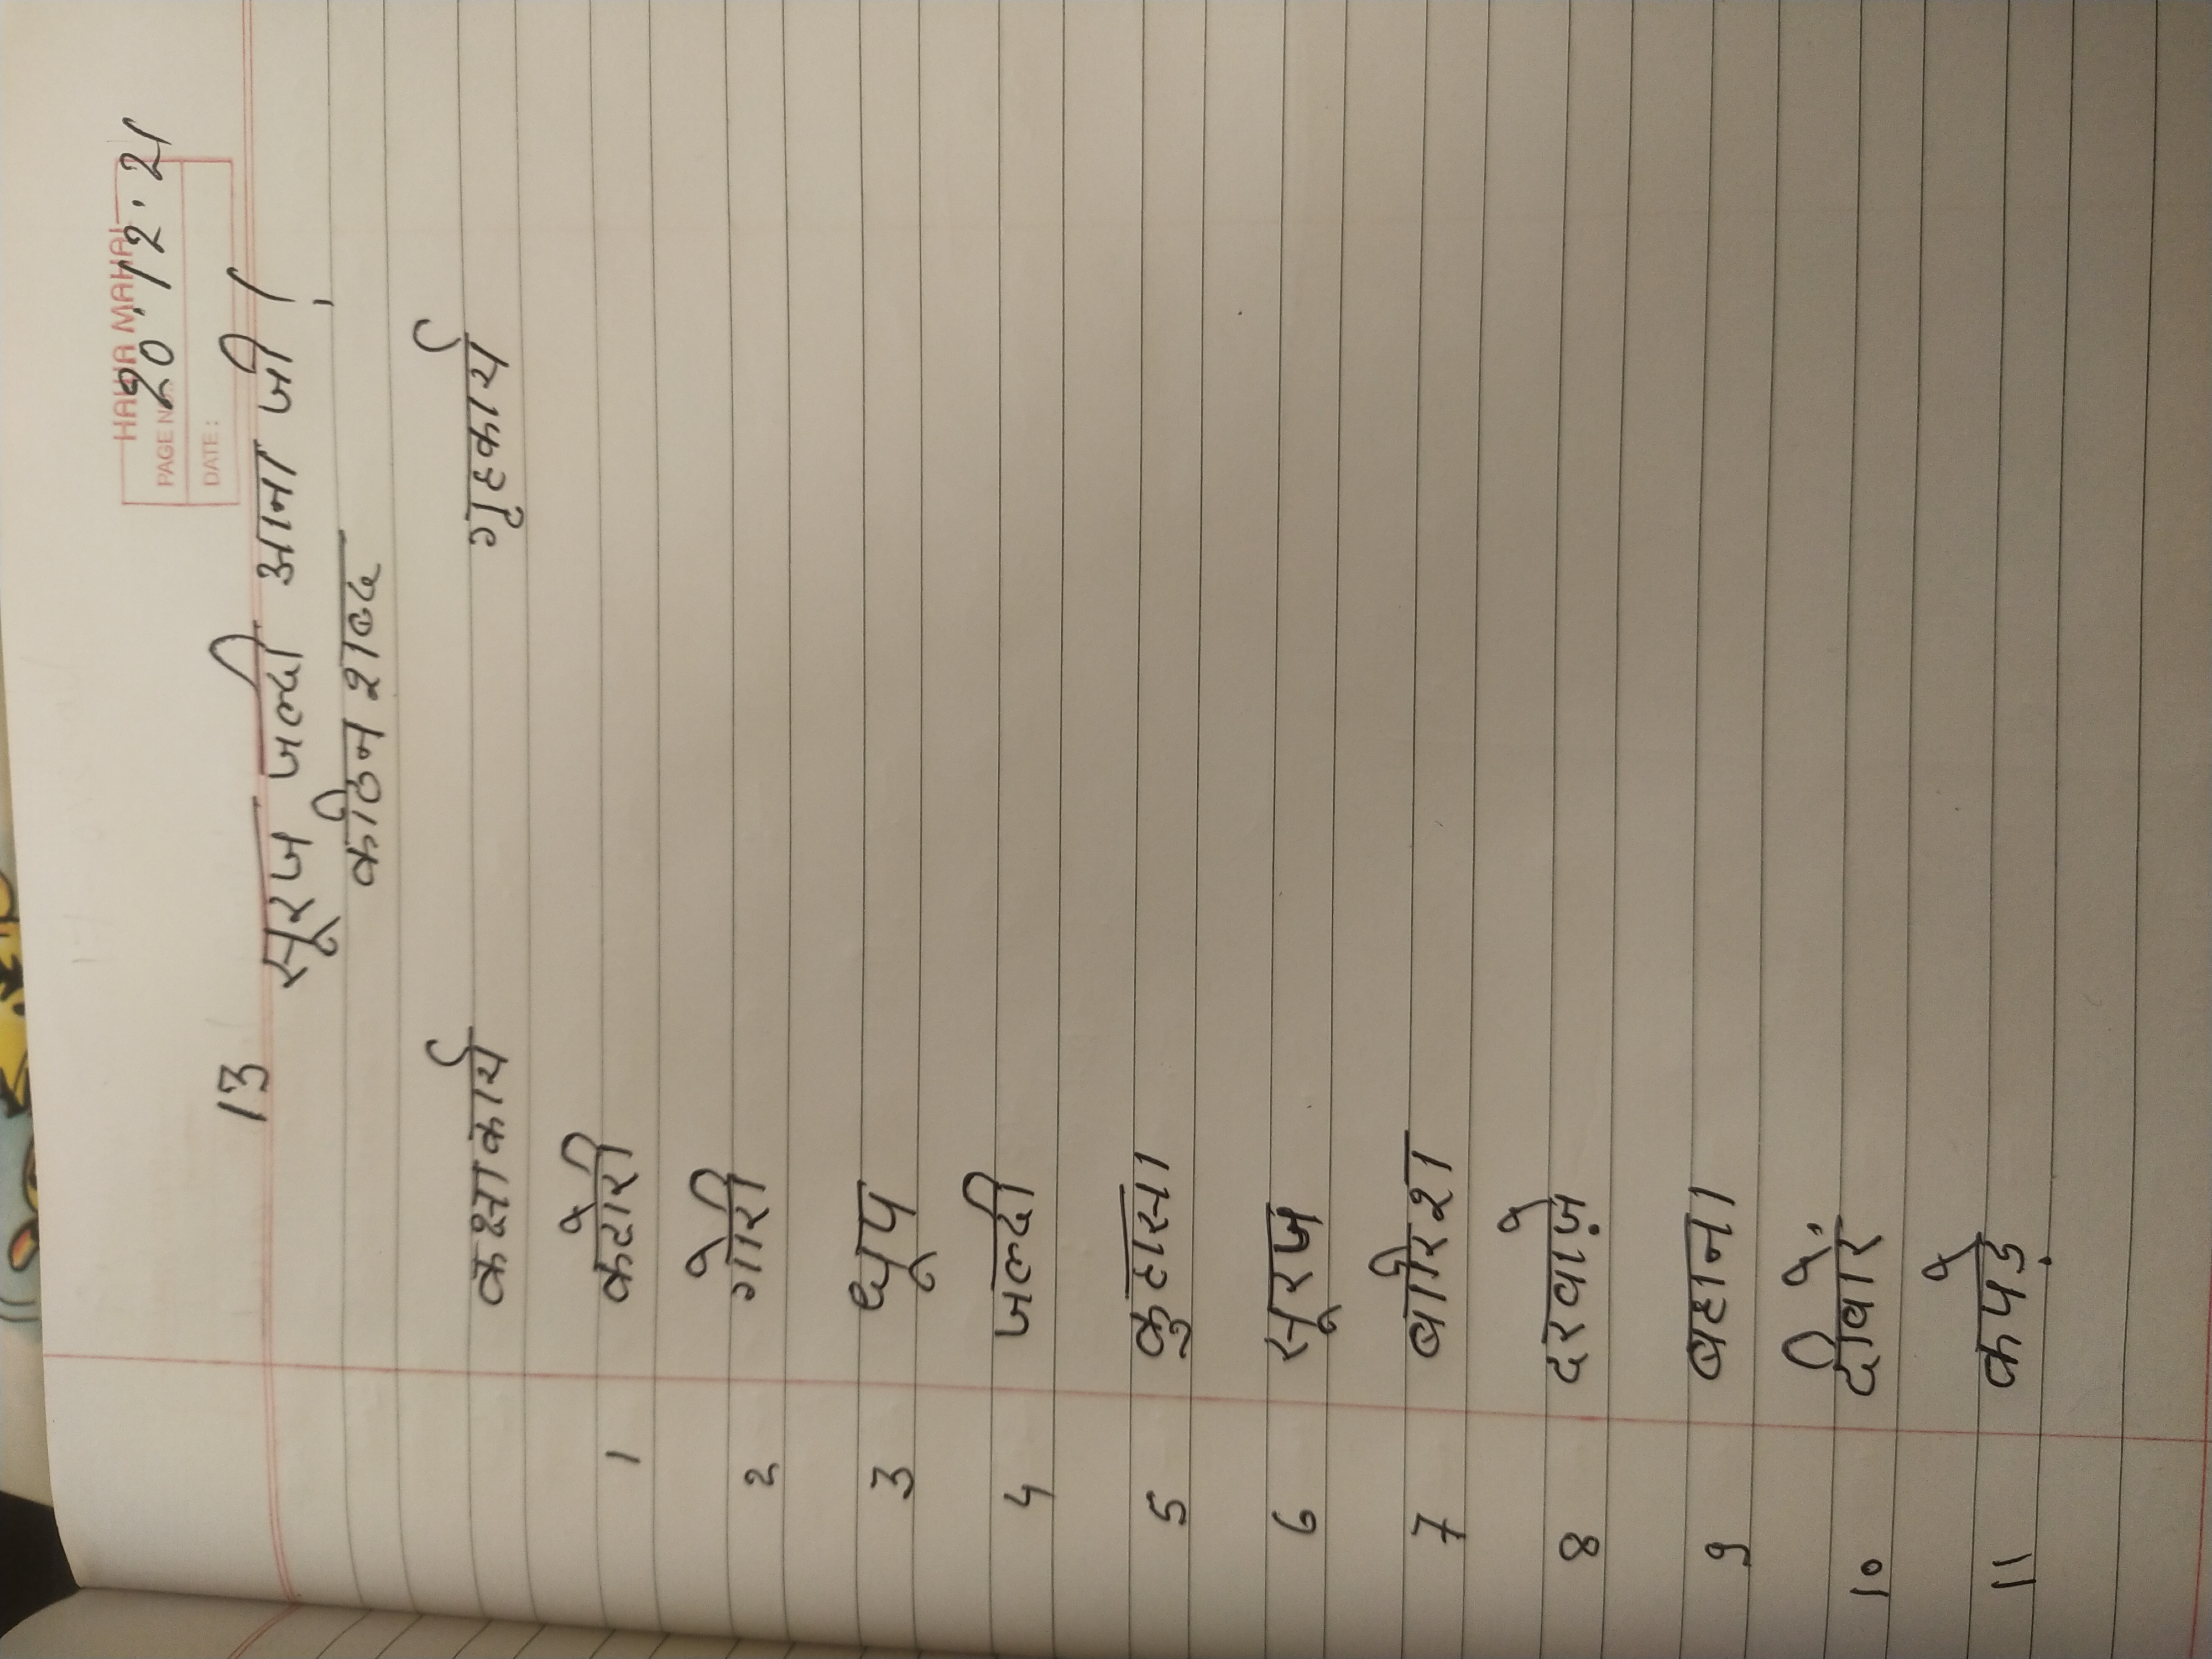 HAWA MAHAL
PAGE NO.
20.12.21
DATE:
13
सूरज जल्दी आना जी!
कठिन शब्द
कक्षाकार्य गृहकार्य
1 कटोरी
2 गोरी
3 धूप
4 जल्दी
5 कुहासा
6 सूरज
7 बारिश
8 दरवाज़े
9 बहाना
10 दीवारें
11 कपड़े